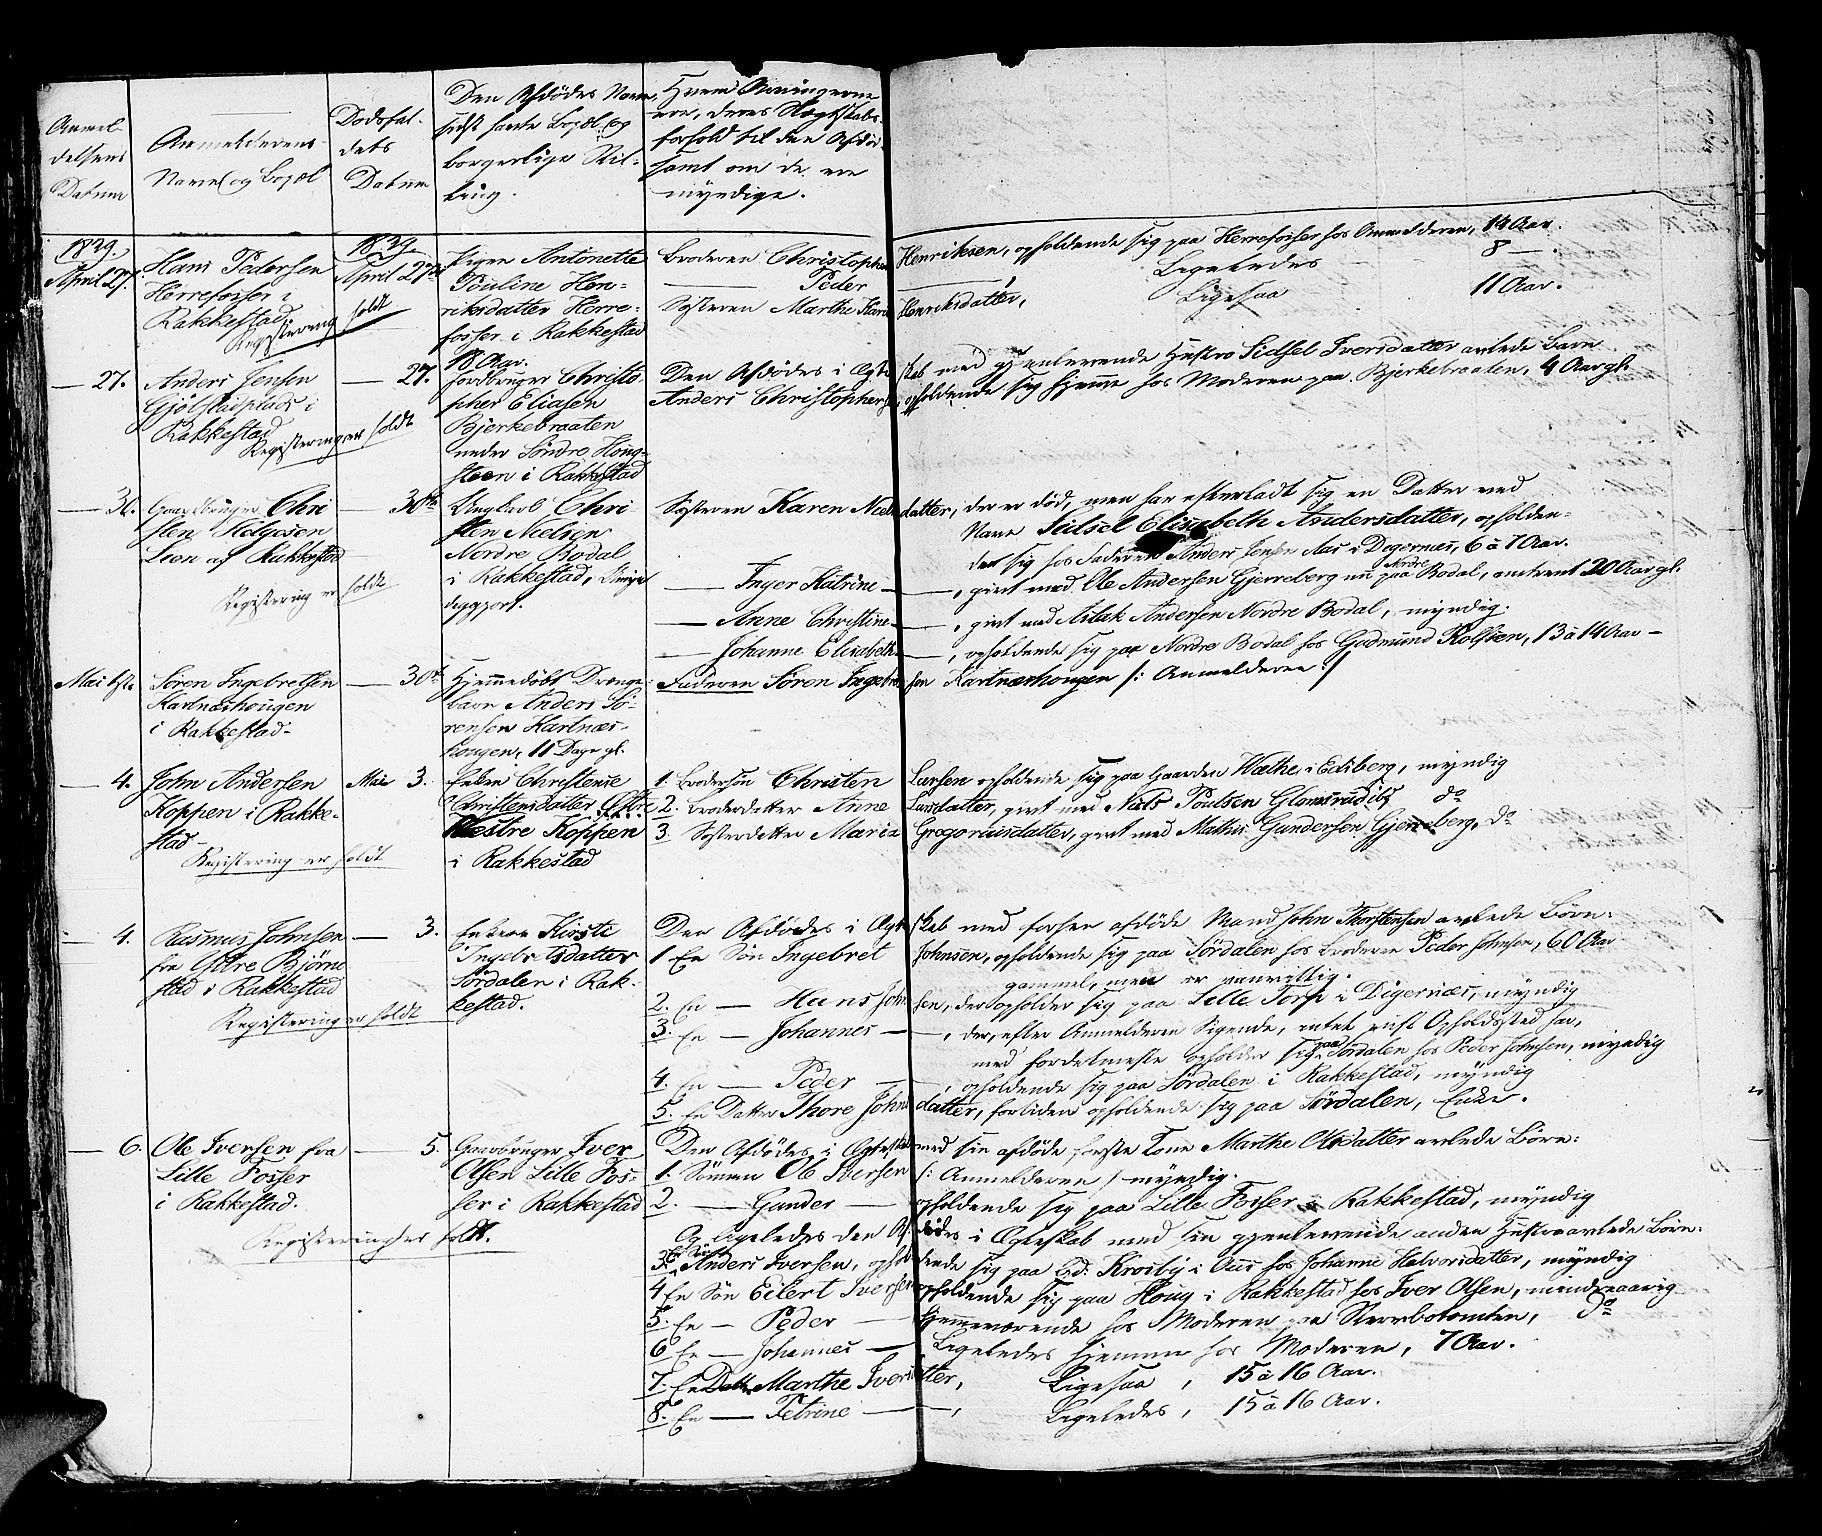 Anmel-
delsens
Datum
Anmelderens
Navn og Bopæl
Dødsfal-
dets
Datum
Den Afdødes Navn,
sidst havte Bopæl og
borgerlige Stil-
ling.
Hvem Arvingerne
ere, deres Slægtskabs-
forhold til den Afdøde
samt om de ere
myndige.
1839.
April 27.
Hans Pedersen
Herrefosser i
Rakkestad.
Registrering holdt
1839
April 27de
Pigen Antonette
Pauline Hen-
riksdatter Herre-
fosser i Rakkestad
18 Aar.
Broderen Christopher Henriksen, opholdende sig paa Herrefosser hos Anmelderen, 14 Aar.
— Peder — Ligeledes 8 —.
Søsteren Marthe Karine Henriksdatter, Ligesaa 11 Aar.
— 27.
Anders Jensen
Gjølstadplads i
Rakkestad
Registrering er holdt
— 27.
Jordbruger Christo-
pher Eliasen
Bjerkebraaten
under Søndre Houg-
steen i Rakkestad
Den Afdødes i Ægteskab med gjenlevende Hustro Sidsel Iversdatter avlede Barn
Anders Christophersen, opholdende sig hjemme hos Moderen paa Bjerkebraaten, 4 Aar gl.
— 30.
Gaardbruger Chri-
sten Helgesen
Leen af Rakkestad
Registrering er holdt
— 30te
Ungkarl Chri-
sten Nielsen
Nordre Bodal
i Rakkestad,
Søsteren Karen Nielsdatter, der er død, men har efterladt sig en Datter ved
Navn Sidsel Elisabeth Andersdatter, opholden-
de sig hos Faderen Anders Jensen Aas i Degernæs, 6 à 7 Aar.
— Inger Katrine — —, givt med Ole Andersen Gjerreberg nu paa Nordre Bodal, omtrent 20 Aar gl.
— Anne Christine — —, givt med Aslak Andersen Nordre Bodal, myndig.
— Johanne Elisabeth — —, opholdende sig paa Nordre Bodal hos Gudmund Rolfsen, 13 à 14 Aar —
Mai 1ste
Søren Ingebretsen
Kartnæshougen
i Rakkestad.
— 30te
Hjemmedøbt Drenge-
barn Anders Sø-
rensen Kartnæs-
hougen, 11 Dage gl.
Faderen Søren Ingebretsen Kartnæshougen /: Anmelderen :/
— 4.
John Andersen
Koppen i Rakke-
stad.
Registrering er holdt
Mai 3.
Enken Christense
Christensdatter Østre
Vestre Koppen
i Rakkestad
1. Brodersøn Christen Larsen opholdende sig paa Gaarden Wæthe i Eidsberg, myndig
2. Broderdatter Anne Larsdatter, givt med Niels Poulsen do
3. Søsterdatter Maria Gregoriusdatter, givt med Mathis Gundersen Gjerreberg, do
— 4.
Rasmus Johnsen
fra Østre Bjørne-
stad i Rakkestad
Registrering er holdt
— 3.
Enken Kirsti
Ingebretsdatter
Sørdalen i Rak-
kestad.
Den Afdødes i Ægteskab med forhen afdøde Mand John Thorstensen avlede Børn:
1 En Søn Ingebret Johnsen, opholdende sig paa Sørdalen hos Broderen Peder Johnsen, 60 Aar
gammel, men er vanvittig.
2. En — Hans Johnsen, der opholder sig paa Lille Torp i Digernæs, myndig
3. En — Johannes — —, der, efter Anmelderens Sigende, intet vist Opholdssted har,
men fordetmeste opholder sig paa Sørdalen hos Peder Johnsen, myndig
4. En — Peder — —, opholdende sig paa Sørdalen i Rakkestad, myndig
5. En Datter Thore Johnsdatter, fortiden opholdende sig paa Sørdalen, Enke.
— 6.
Ole Iversen fra
Lille Fosser
i Rakkestad.
Registrering er holdt.
— 5.
Gaardbruger Iver
Olsen Lille Fos-
ser i Rakkestad
Den Afdødes i Ægteskab med sin afdøde første Kone Marthe Olsdatter avlede Børn:
1. Sønnen Ole Iversen /: Anmelderen / myndig.
2. — Gunder — opholdende sig paa Lille Fosser i Rakkestad, myndig
Og ligeledes den Afdødes i Ægteskab med sin gjenlevende anden Hustro avlede Børn:
3. En Søn Anders Iversen, opholdende sig paa Krosby i Aas hos Johanne Halvorsdatter, myndig
4 En Søn Eilert Iversen opholdende sig paa Houg i Rakkestad hos Iver Olsen, mindreaarig
5. En — Peder — Hjemmeværende hos Moderen paa do
6 En — Johannes — Ligeledes hjemme hos Moderen, 7 Aar.
7. En Datter Marthe Iversdatter, Ligesaa, 15 à 16 Aar.
8. En — Petrine — —, Ligeledes, 15 à 16 Aar.